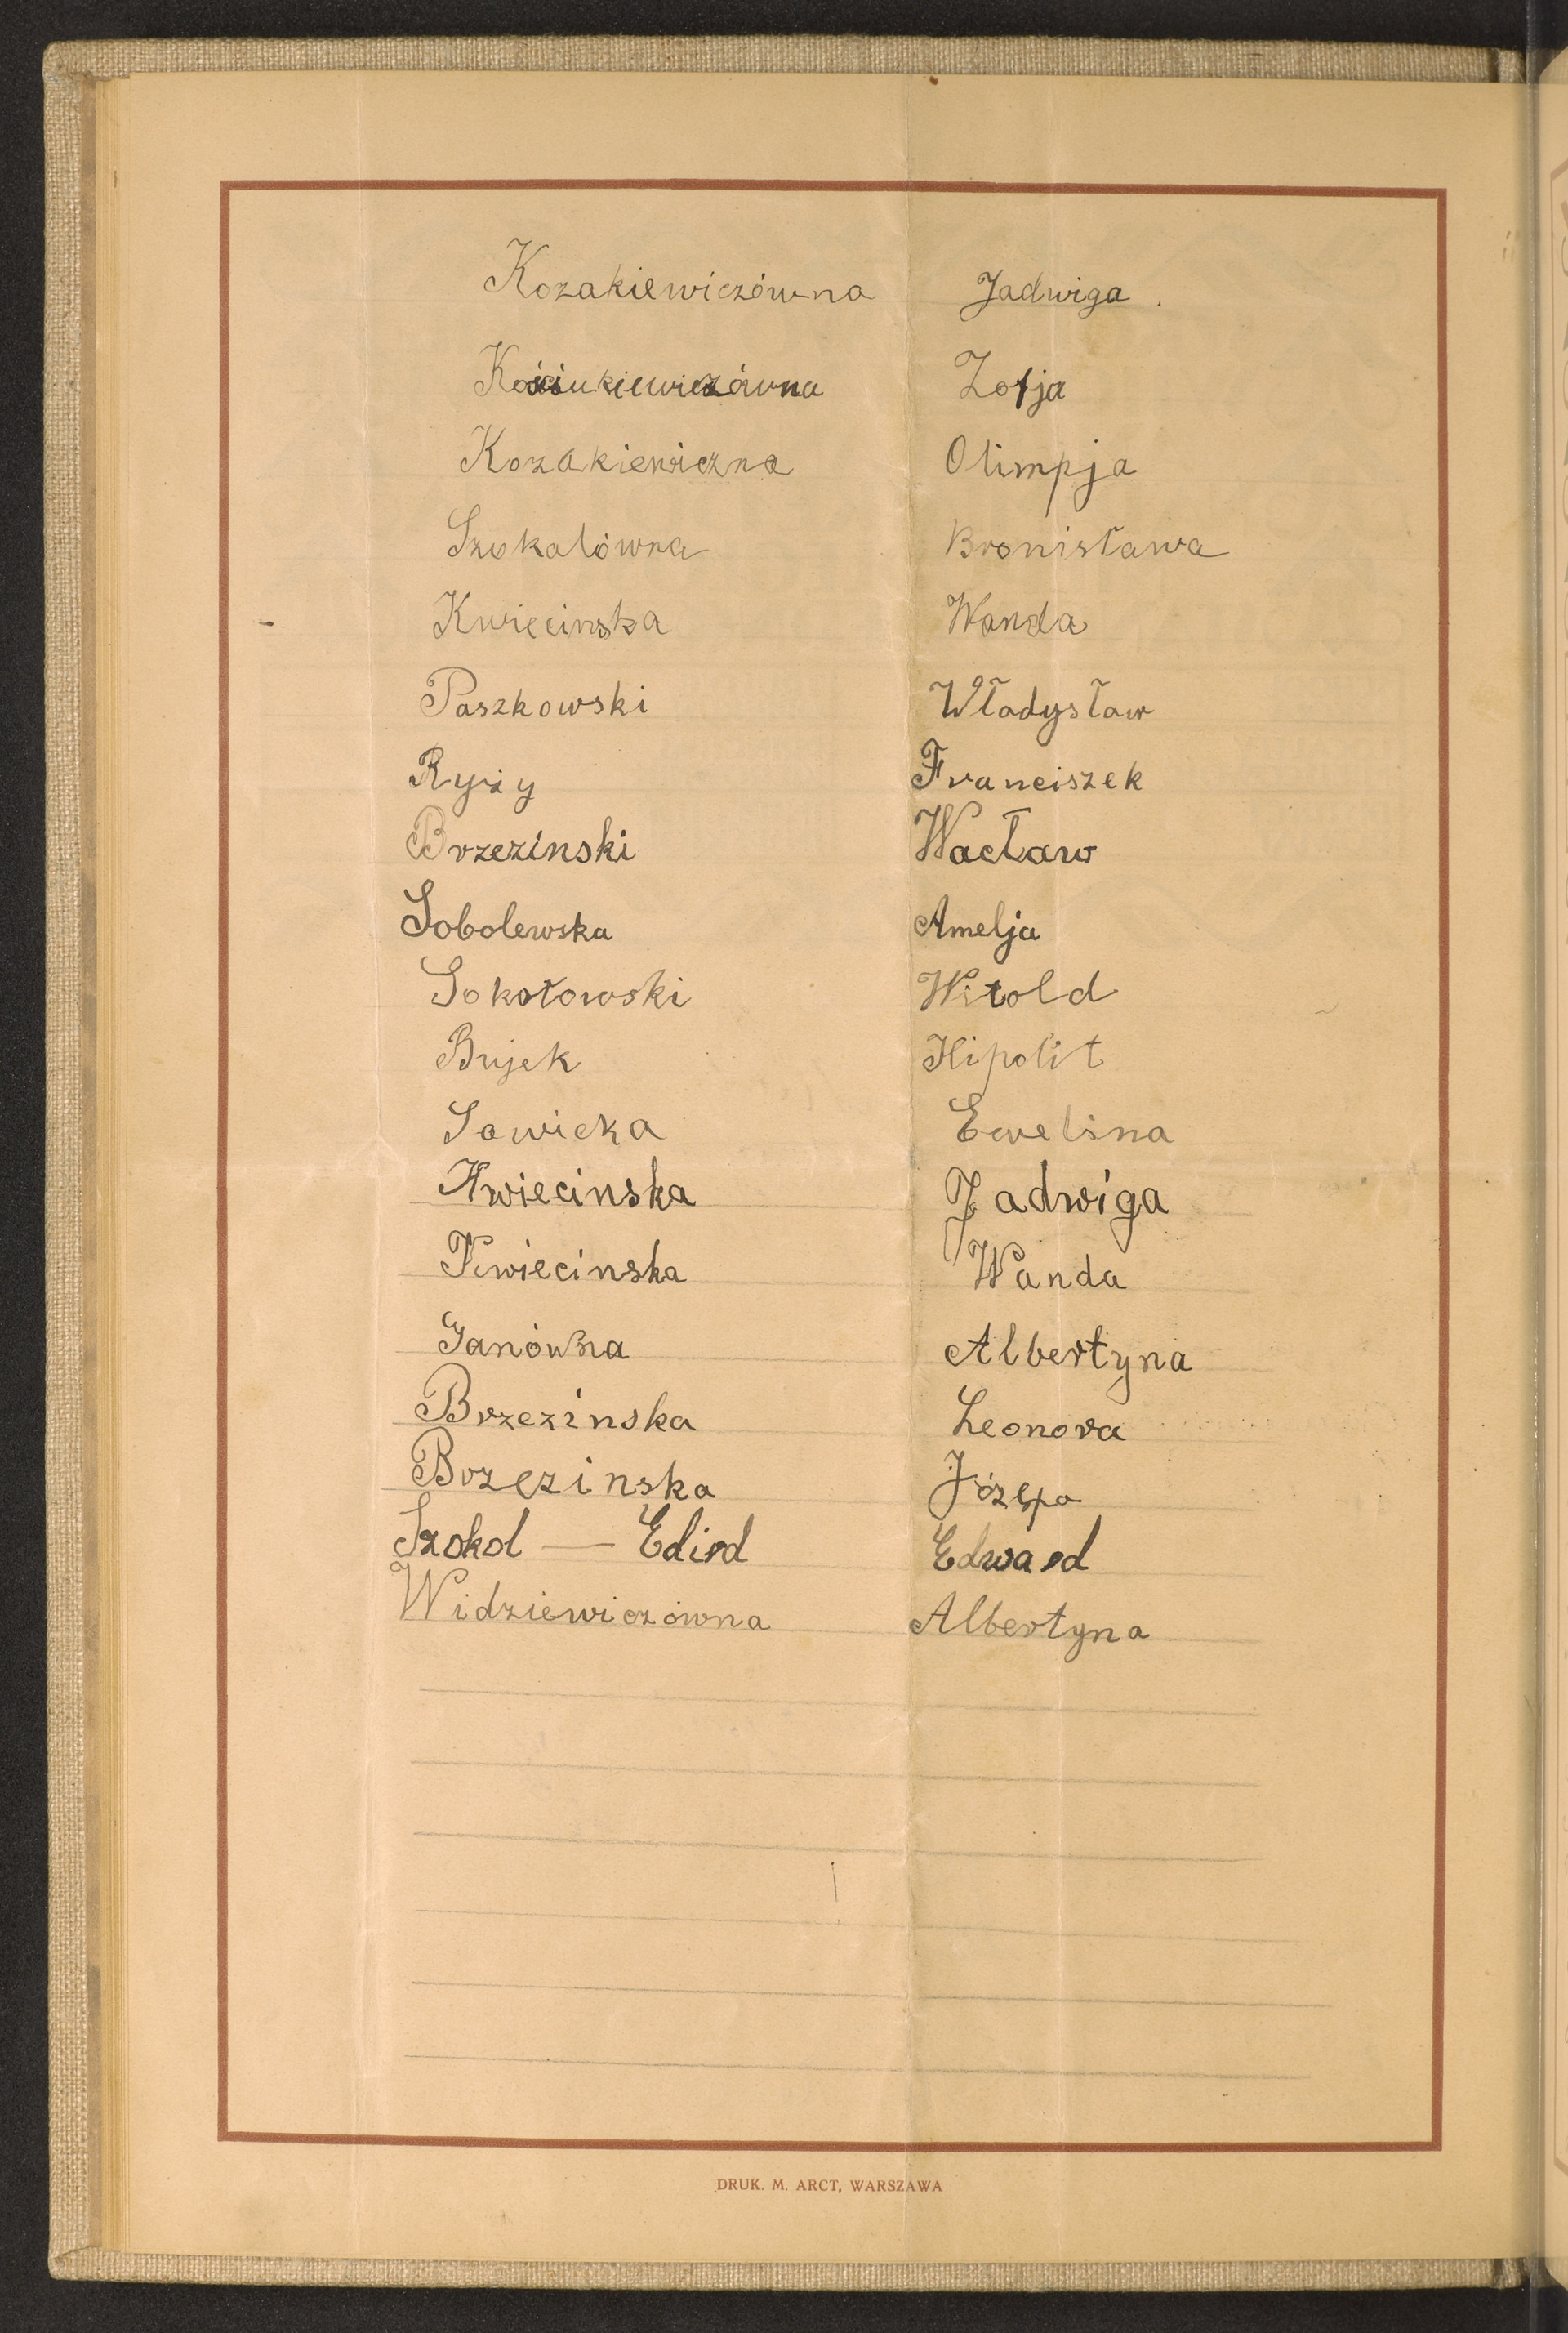 Kozakiewiczówna Jadwiga.
Kościukiewiczówna Zofja
Kozakiewiczna Olimpja
Szokalówna Bronisława
Kwiecinska Wanda
Paszkowski Władysław
Ryży Franciszek
Brzezinski Wacław
Sobolewska Amelja
Sokołowski Witold
Bujek Hipolit
Sawicka Ewelina
Kwiecinska Jadwiga
Kwiecinska Wanda
Janówna Albertyna
Brzezinska Leonora
Brzezinska Józefa
Szokol — Edird Edward
Widziewiczówna Albertyna
DRUK. M. ARCT, WARSZAWA